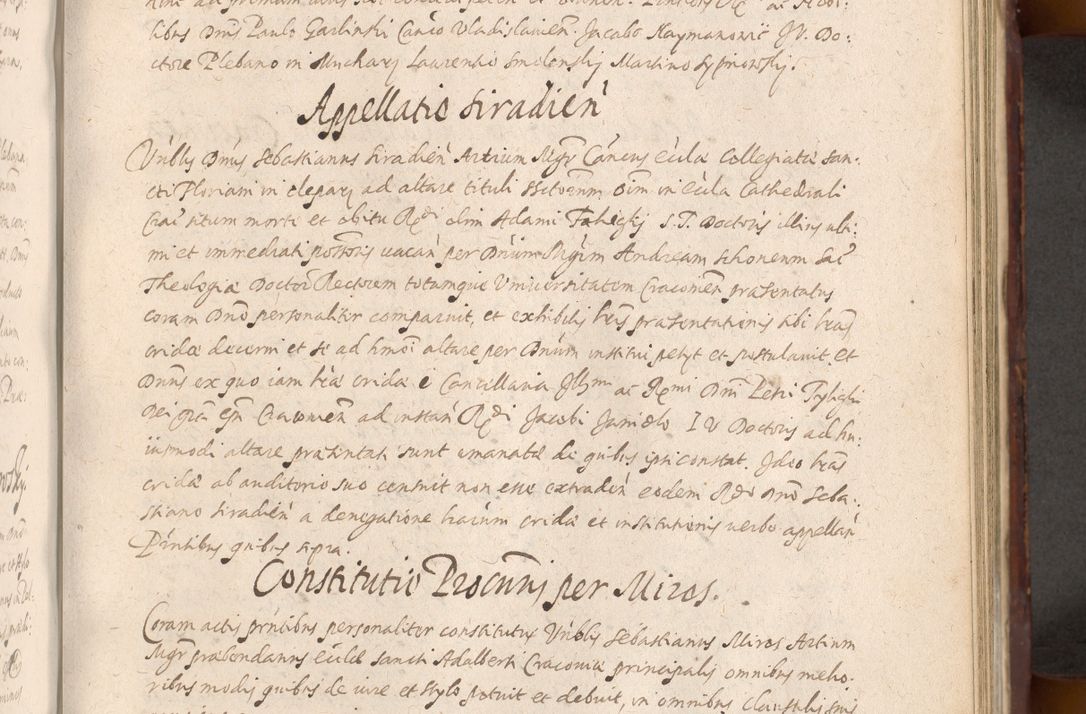 libus Dnis Paulo Garlinski Canco Vladislavien. Jacobo Naymanowic JV. Do:
ctore Plebano in Mucharz Laurentio Smolenskij Martino
Appellatio Siradien
Vnblis Dnus Sebastianus Siradien Artium Mgr Cancus Ecclae Collegiatae San:
cti Floriani in Clepary ad altare tituli oim in Eccla Cathedrali
Crac situm morte et obitu Rdi olim Adami S. T. Doctoris illius ulti
mi et immediati possoris vacan per Dnum Mgrum Andream Schonenm Sac
Theologiae Doctor Rectorem totumque Vniversitatem Cracouien praesentatus
coram Dno personaliter comparuit, et exhibitis lris praesentationis sibi lras
cridae decerni et se ad hmoi altare per Dnum institui petyt et postulavit. Et
Dnus ex quo iam lrae cridae e Cancellaria Illmi ac Rmi Dni Petri Tylicki
Dei gra Epi Cracouien ad instan Rdi Jacobi Janidlo I V Doctoris ad hu:
iusmodi altare praesentati sunt emanatae de quibus ipsi constat. Ideo lras
cridae ab auditorio suo censuit non esse extraden eodem Rdo Dno Seba:
stiano Siradien a denegatione harum cridae et institutionis verbo appellan
Pntibus quibus supra.
Constitutio Procunij per Miros.
Coram actis pntibus personaliter constitutus Vnblis Sebastianus Miros Artium
Mgr praebendarius Ecclae Sancti Adalberti Cracoviae principalis omnibus melio:
ribus modis quibus de iure et stylo potuit et debuit, in omnibus Causis suis